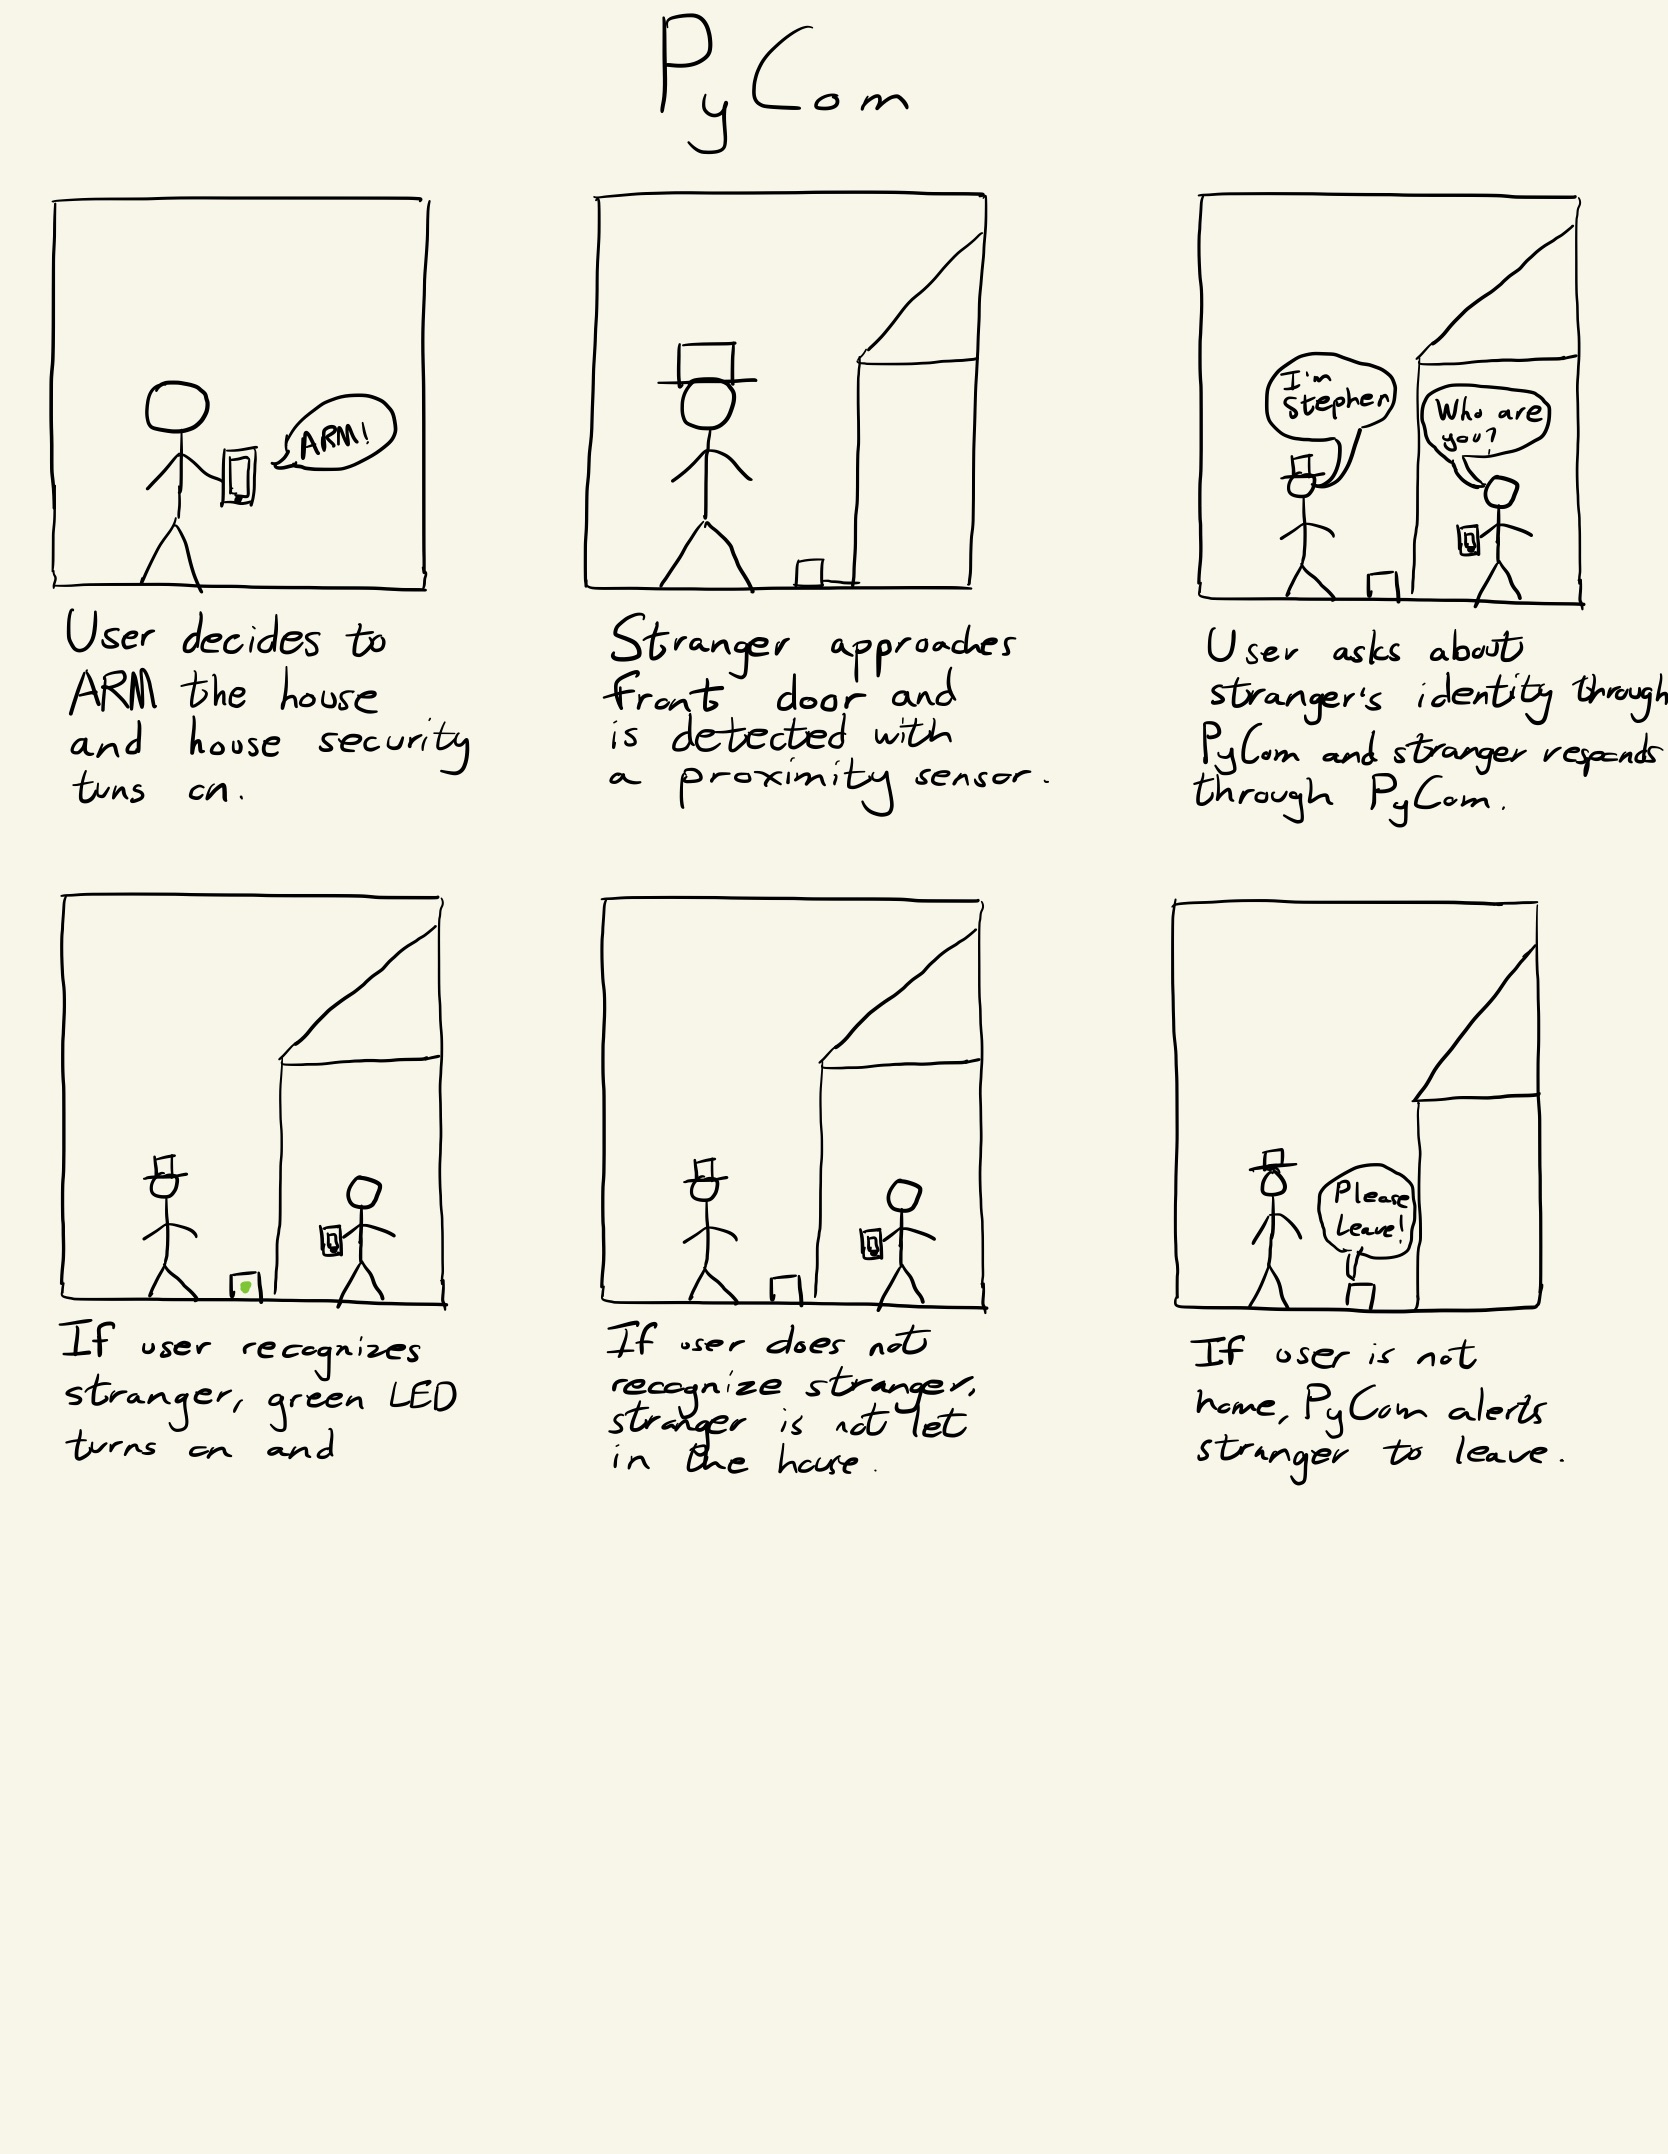 PyCom
ARM!
User decides to
ARM the house
and house security
tuns on.
Stranger approaches
front door and
is detected with
a proximity sensor.
I'm
Stephen
Who are
you?
User asks about
stranger's identity through
PyCom and stranger responds
through PyCom.
If user recognizes
stranger, green LED
turns on and
If user does not
recognize stranger,
stranger is not let
in the house.
Please
Leave!
If user is not
home, PyCom alerts
stranger to leave.